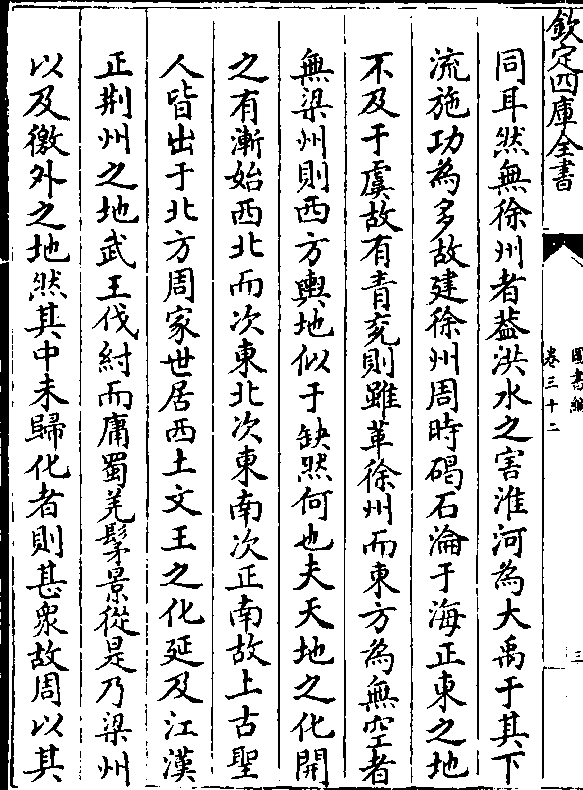 欽定四庫全書
圖書編
卷三十二
三
同耳然無徐州者葢洪水之害淮河為大禹于其下
流施功為多故建徐州周時碣石淪于海正東之地
不及于虞故有青兖則雖革徐州而東方為無空者
無梁州則西方輿地似于缺然何也夫天地之化開
之有漸始西北而次東北次東南次正南故上古聖
人皆出于北方周家世居西土文王之化延及江漢
正荆州之地武王伐紂而庸蜀羌髳景從是乃梁州
以及徼外之地然其中未歸化者則甚衆故周以其